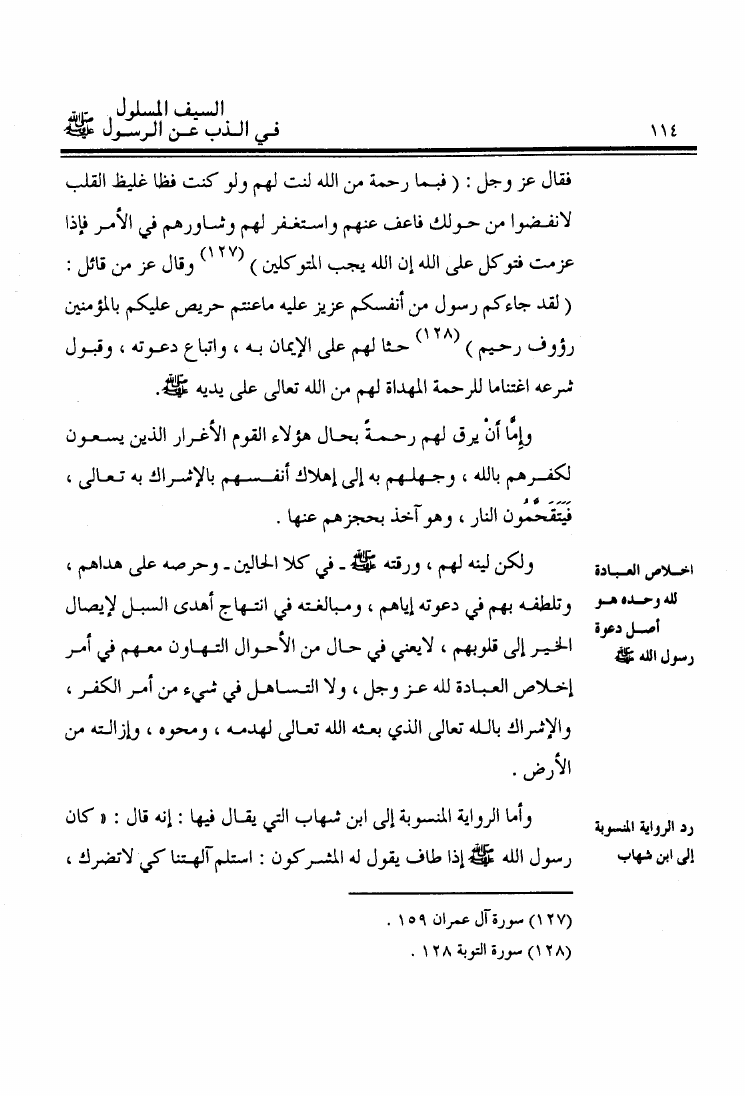 ١١٤
السيف المسلول
في الذب عن الرسول ﷺ
فقال عز وجل : ( فبما رحمة من الله لنت لهم ولو كنت فظا غليظ القلب
لانفضوا من حولك فاعف عنهم واستغفر لهم وشاورهم في الأمر فإذا
عزمت فتوكل على الله إن الله يحب المتوكلين ) (١٢٧) وقال عز من قائل :
( لقد جاءكم رسول من أنفسكم عزيز عليه ماعنتم حريص عليكم بالمؤمنين
رؤوف رحيم ) (١٢٨) حثا لهم على الإيمان به ، واتباع دعوته ، وقبول
شرعه اغتناما للرحمة المهداة لهم من الله تعالى على يديه ﷺ.
وإمَّا أنْ يرق لهم رحمةً بحال هؤلاء القوم الأغرار الذين يسعون
لكفرهم بالله ، وجهلهم به إلى إهلاك أنفسهم بالإشراك به تعالى ،
فيَتَقَحَّمُون النار ، وهو آخذ بحجزهم عنها .
ولكن لينه لهم ، ورقته ﷺ ـ في كلا الحالين ـ وحرصه على هداهم ،
وتلطفه بهم في دعوته إياهم ، ومبالغته في انتهاج أهدى السبل لإيصال
الخير إلى قلوبهم ، لايعني في حال من الأحوال التهاون معهم في أمر
إخلاص العبادة لله عز وجل ، ولا التساهل في شيء من أمر الكفر ،
والإشراك بالله تعالى الذي بعثه الله تعالى لهدمه ، ومحوه ، وإزالته من
الأرض .
اخلاص العبادة
لله وحده هو
أصل دعوة
رسول الله ﷺ
وأما الرواية المنسوبة إلى ابن شهاب التي يقال فيها : إنه قال : « كان
رسول الله ﷺ إذا طاف يقول له المشركون : استلم آلهتنا كي لاتضرك ،
رد الرواية المنسوبة
إلى ابن شهاب
(١٢٧) سورة آل عمران ١٥٩ .
(١٢٨) سورة التوبة ١٢٨ .